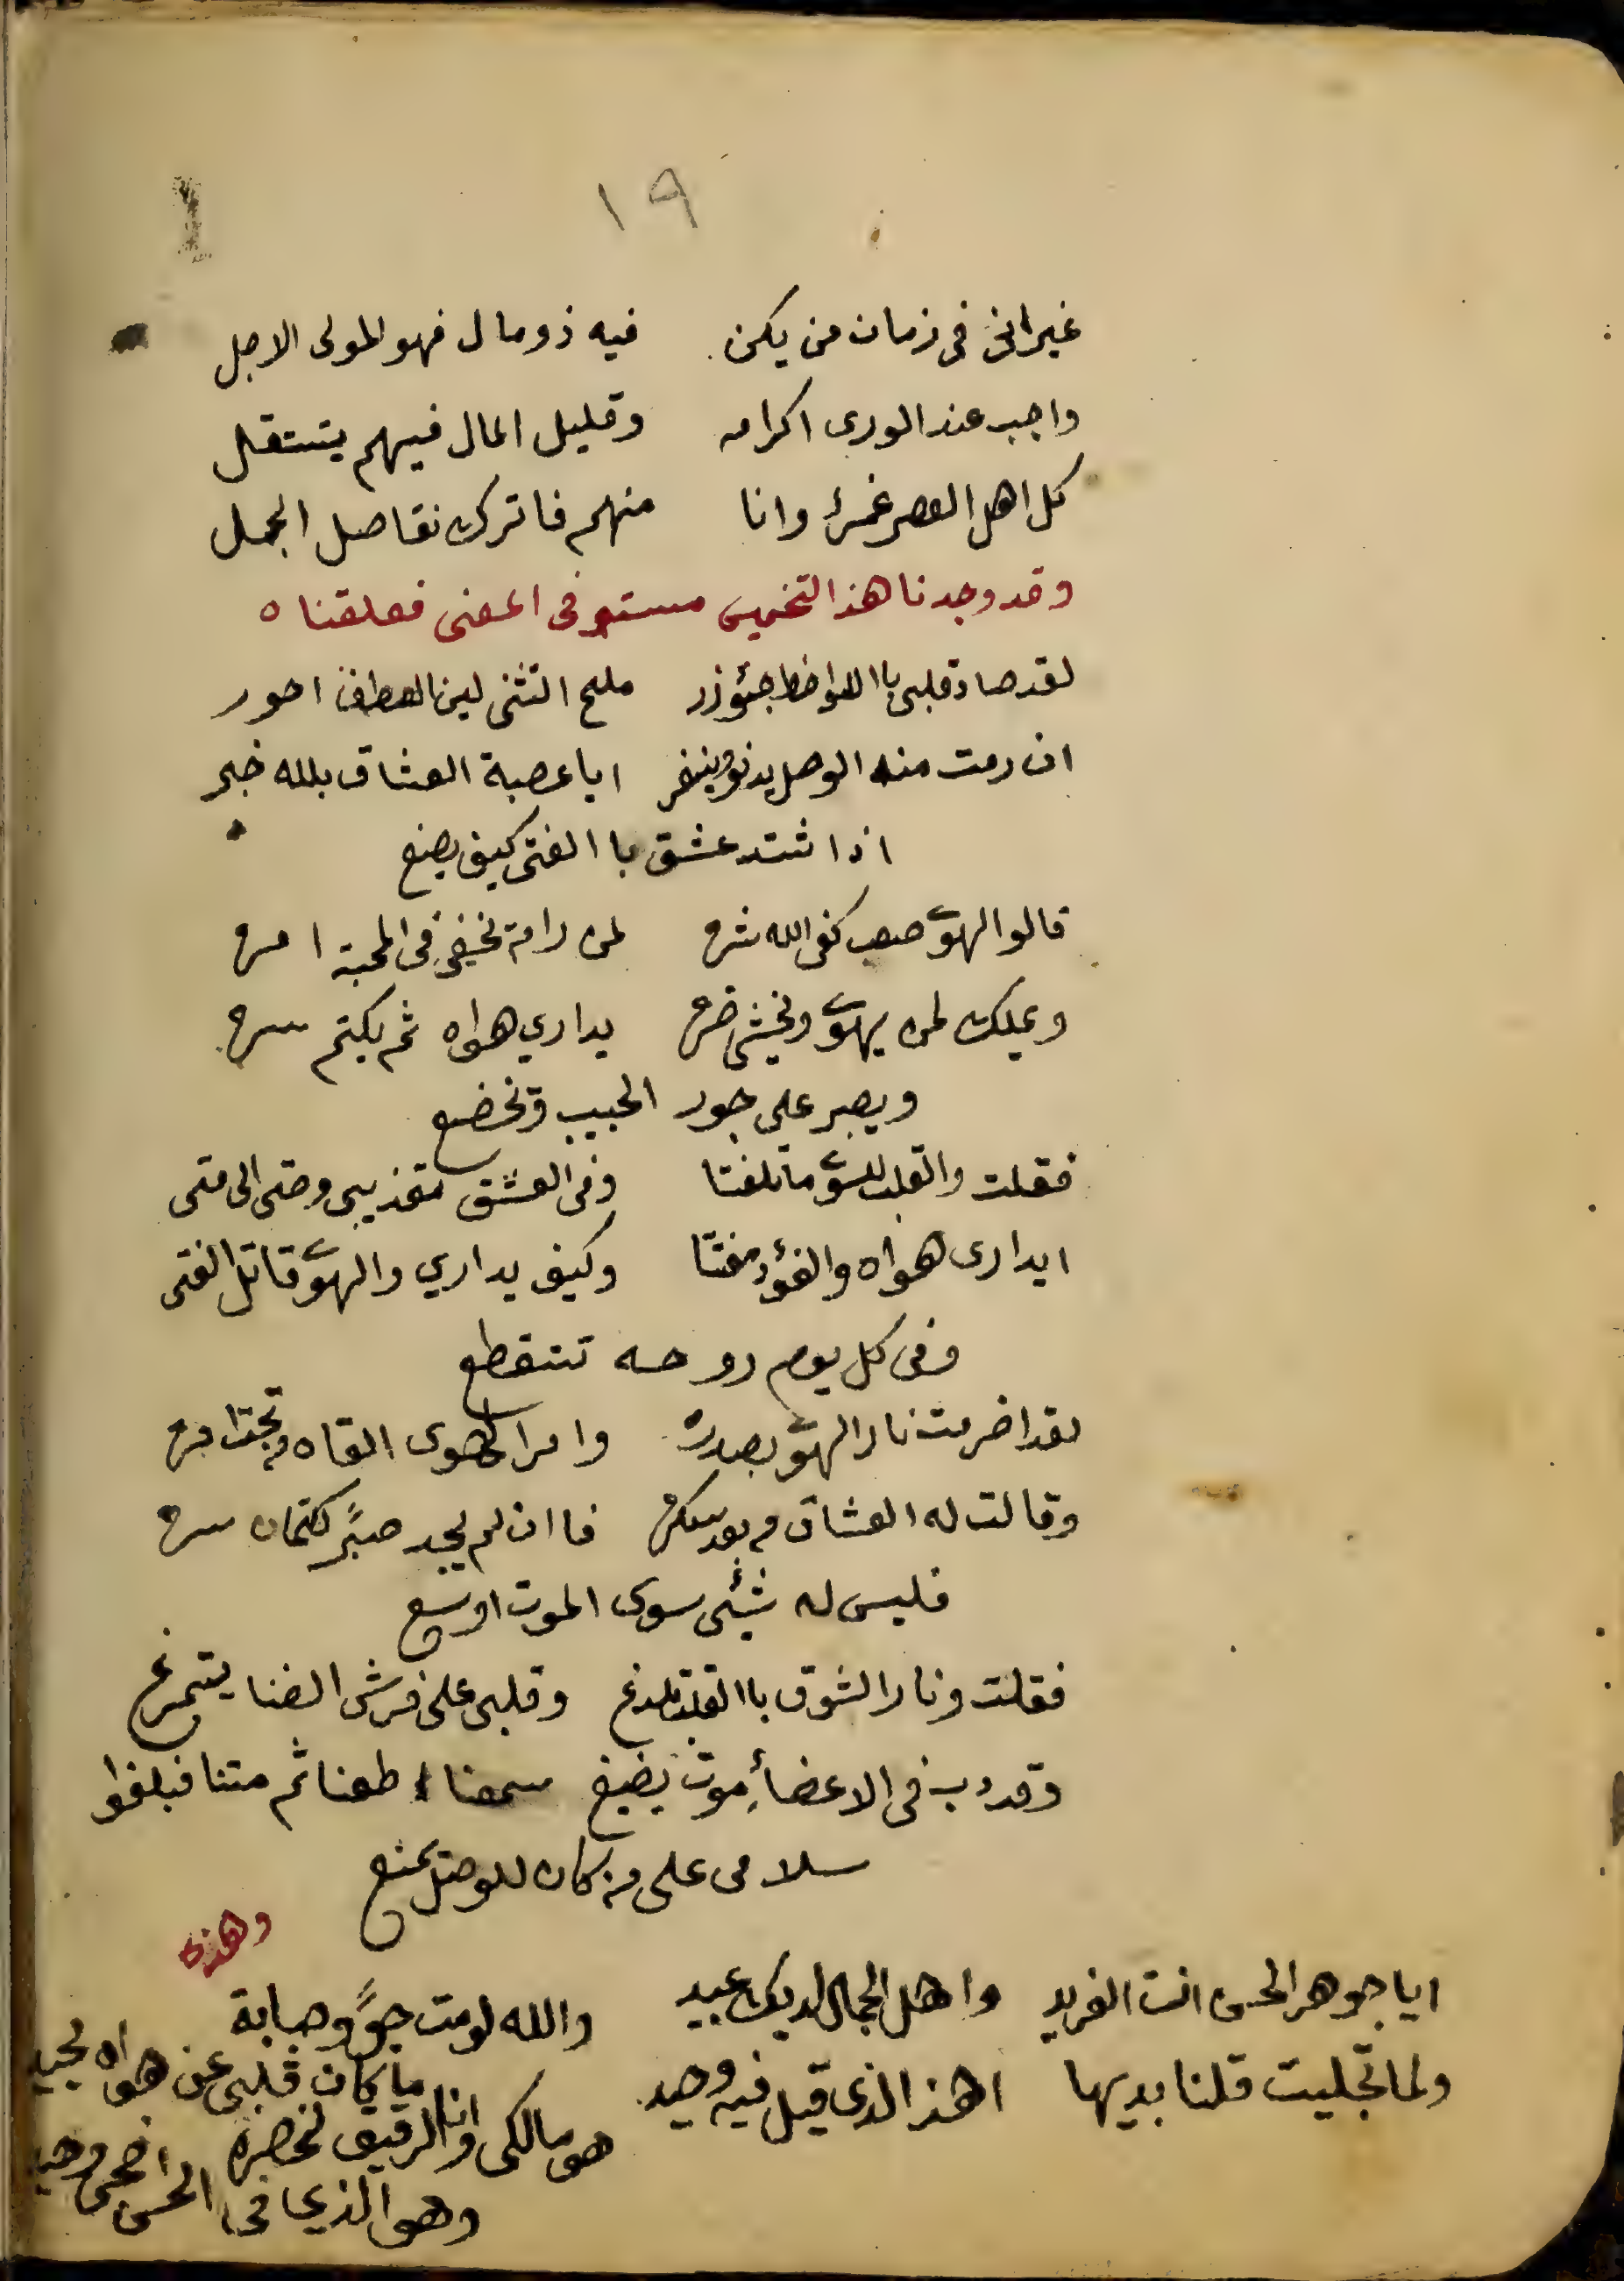 ١٩
غير اني في زمان من يكن فيه ذو مال فهو المولى الاجل
واجب عند الورى اكرامه وقليل المال فيهم يستقل
كل اهل العصر غمرٌ وانا منهم فاترك تفاصيل الجمل
وقد وجدنا هذا التخميس مستوفى المعنى فعلقناه
لقد صاد قلبي باللواحظ جئوذر مليح التثني لين العطف احور
ان رمت منه الوصل يدنو وينفر ايا عصبة العشاق بلله خبر
اذا شتد عشق باالفتى كيف يصنع
قالوا الهوى صعب كفى الله شره لمن رام تخفي في المحبة امره
ويملك لمن يهوى ويخشى ضره يداري هواه ثم يكتم سره
ويصبر على جور الحبيب ويخضع
فقلت والقلب للسوى ما تلفتا وفي العشق تعذيبي وحتى الى متى
ايدارى هواه والفؤد مفتتا وكيف يداري والهوى قاتل الفتى
وفي كل يوم روحه تتقطع
لقد اضرمت نار الهوى بصدره وامر الهوى القاه تحت امره
وقالت له العشاق من بعد سكره فاان لم يجد صبرً لكتمان سره
فليس له شئى سوى الموت اوسع
فقلت ونار الشوق باالقلب تلدغ وقلبي على فرش الضنا يتمرغ
وقد دب في الاعضأِ موت يضيغ سمعنا اطعنا ثم متنا فبلغوا
سلامي على من كان للوصل يمنع
وهذه
ايا جوهر الحسن انت الفريد واهل الجمال لديك عبيد
ولما تجليت قلنا بديها اهذا الذي قيل فيه وحيد
والله لو مت جوًى وصبابة
ما كان قلبي عن هواه يحيد
هو مالكي وانا الرقيق لخصره
وهو الذي في الحسن اضحى وحيد